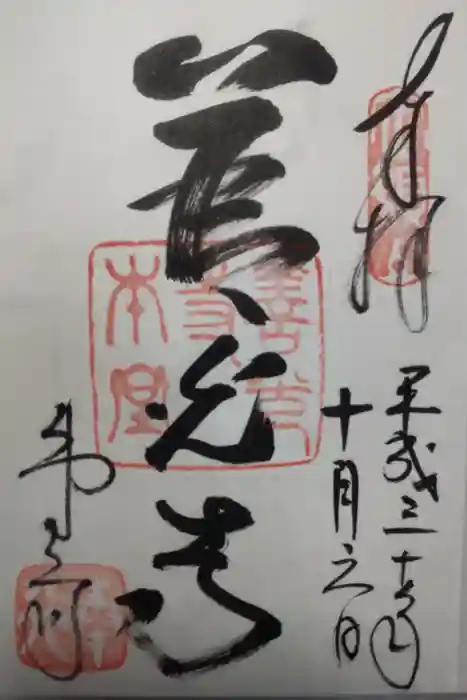 奉拝
平成三十年
十月六日
善光寺
善光
寺
本堂